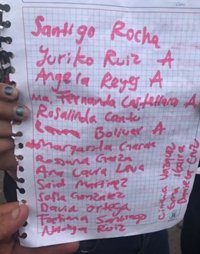 Santigo Rocha
Yuriko Ruiz A
Angela Reyes A
Ma. Fernanda Castellano A
Rosalinda Cantu
Boliver A
Margarita
Rossana Garza
Ana Laura Leva
Said Martinez
Sofia Gonzalez
David Ortega
Fatima Santiago
Nadya Ruiz